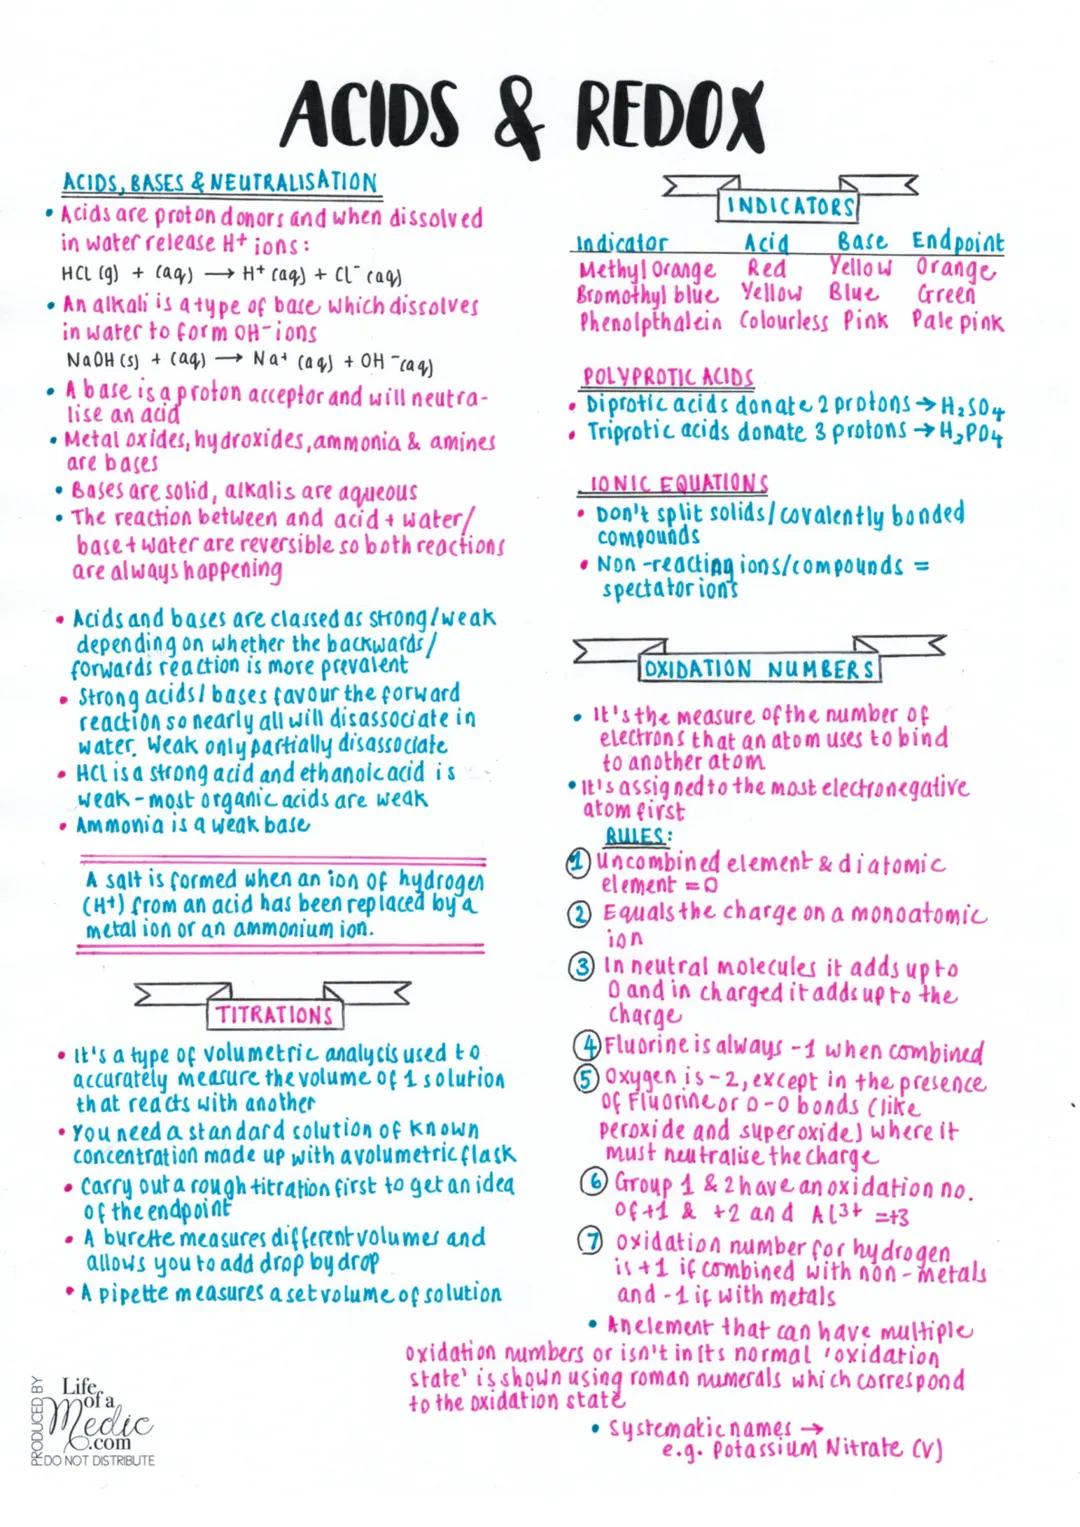 ACIDS & REDOX
ACIDS, BASES & NEUTRALISATION
• Acids are proton donors and when dissolved
in water release H+ ions:
HCL (g) + (aq) → H+ (aq) + Cl- (aq)
• An alkali is a type of base which dissolves
in water to form OH- ions
NaOH (s) + (aq) → Na+ (aq) + OH- (aq)
• A base is a proton acceptor and will neutra-
lise an acid
• Metal oxides, hydroxides, ammonia & amines
are bases
• Bases are solid, alkalis are aqueous
• The reaction between and acid + water/
base + water are reversible so both reactions
are always happening
• Acids and bases are classed as strong/weak
depending on whether the backwards/
forwards reaction is more prevalent
• Strong acids/bases favour the forward
reaction so nearly all will disassociate in
water. Weak only partially disassociate
• HCL is a strong acid and ethanoic acid is
weak - most organic acids are weak
• Ammonia is a weak base
A salt is formed when an ion of hydrogen
(H+) from an acid has been replaced by a
metal ion or an ammonium ion.
TITRATIONS
• It's a type of volumetric analysis used to
accurately measure the volume of 1 solution
that reacts with another
• You need a standard solution of known
concentration made up with a volumetric flask
• Carry out a rough titration first to get an idea
of the endpoint
• A burette measures different volumes and
allows you to add drop by drop
• A pipette measures a set volume of solution
INDICATORS
Indicator Acid Base Endpoint
Methyl Orange Red Yellow Orange
Bromothyl blue Yellow Blue Green
Phenolpthalein Colourless Pink Pale pink
POLYPROTIC ACIDS
• Diprotic acids donate 2 protons → H2SO4
• Triprotic acids donate 3 protons → H3PO4
IONIC EQUATIONS
• Don't split solids/covalently bonded
compounds
• Non-reacting ions/compounds =
spectator ions
OXIDATION NUMBERS
• It's the measure of the number of
electrons that an atom uses to bind
to another atom
• It's assigned to the most electronegative
atom first
RULES:
① Uncombined element & diatomic
element = 0
② Equals the charge on a monoatomic
ion
③ In neutral molecules it adds up to
0 and in charged it adds up to the
charge
④ Fluorine is always -1 when combined
⑤ Oxygen is -2, except in the presence
of Fluorine or O-O bonds (like
peroxide and superoxide) where it
must neutralise the charge
⑥ Group 1 & 2 have an oxidation no.
of +1 & +2 and Al3+ = +3
⑦ oxidation number for hydrogen
is +1 if combined with non-metals
and -1 if with metals
• An element that can have multiple
oxidation numbers or isn't in its normal 'oxidation
state' is shown using roman numerals which correspond
to the oxidation state
• Systematic names →
e.g. Potassium Nitrate (V)
PRODUCED BY
Life
of a
Medic
.com
DO NOT DISTRIBUTE